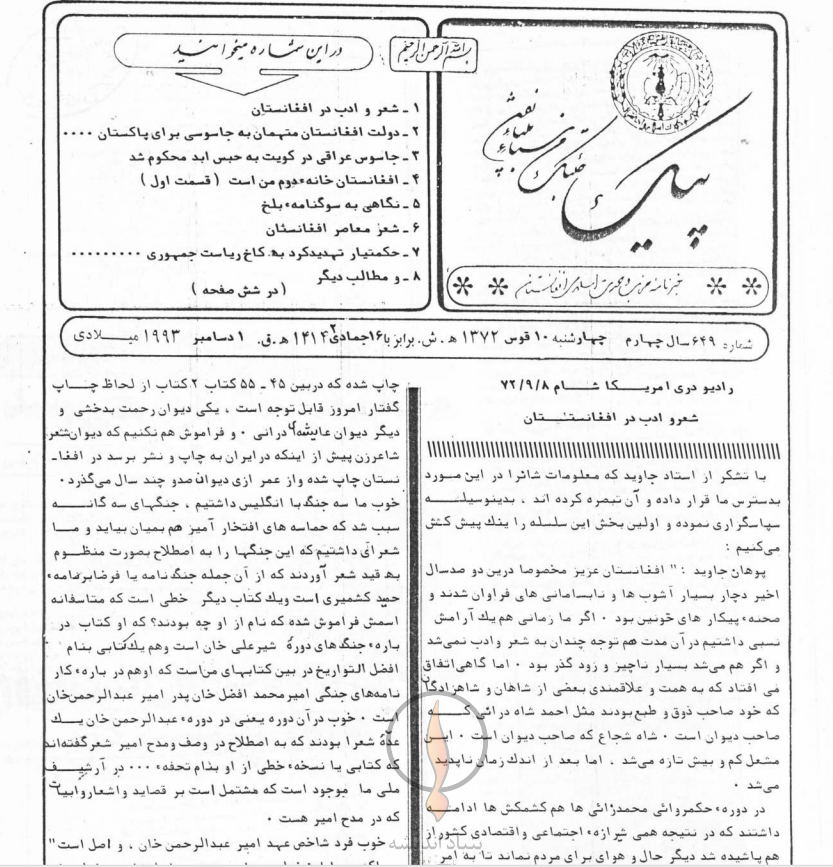 بسم الله الرحمن الرحیم
پیک
خبرنامه مردمی و حرکت اسلامی افغانستان
در این شماره میخوانید
۱ ـ شعر و ادب در افغانستان
۲ ـ دولت افغانستان متهمان به جاسوسی برای پاکستان ۰۰۰۰
۳ ـ جاسوس عراقی در کویت به حبس ابد محکوم شد
۴ ـ افغانستان خانهء دوم من است ( قسمت اول )
۵ ـ نگاهی به سوگنامهء بلخ
۶ ـ شعر معاصر افغانستان
۷ ـ حکمتیار تهدید کرد به کاخ ریاست جمهوری ۰۰۰۰۰۰۰۰۰
۸ ـ و مطالب دیگر
( در شش صفحه )
شماره ۶۴۹ سال چهارم چهارشنبه ۱۰ قوس ۱۳۷۲ هـ . ش. برابر با ۱۶ جمادی ۲ ۱۴۱۴ هـ . ق. ۱ دسامبر ۱۹۹۳ میلادی
رادیو دری امریکا شام ۷۲/۹/۸
شعرو ادب در افغانستان
با تشکر از استاد جاوید که معلومات شانرا در این مورد
بدسترس ما قرار داده و آن تبصره کرده اند . بدینوسیله
سپاسگزاری نموده و اولین بخش این سلسله را اینك پیش کش
می‌کنیم :
پوهان جاوید : " افغانستان عزیز مخصوصا درین دو صدسال
اخیر دچار بسیار آشوب ها و نابسامانی های فراوان شدند و
صحنهء پیکار های خونین بود ۰ اگر ما زمانی هم یك آرامش
نسبی داشتیم در آن مدت هم توجه چندان به شعر وادب نمی‌شد
و اگر هم می‌شد بسیار ناچیز و زود گذر بود ۰ اما گاهی اتفاق
می افتاد که به همت و علاقمندی بعضی از شاهان و شاهزادگان
که خود صاحب ذوق و طبع بودند مثل احمد شاه درانی که
صاحب دیوان است ۰ شاه شجاع که صاحب دیوان است ۰ این
مشعل کم و بیش تازه می‌شد . اما بعد از اندك زمان ناپدید
می‌شد ۰
در دورهء حکمروائی محمدزائی ها هم کشمکش ها ادامه
داشتند که در نتیجه همی شیرازهء اجتماعی و اقتصادی کشور از
هم پاشیده شد دیگر حال و هوای برای مردم نماند تا به امر
چاپ شده که دربین ۴۵ ـ ۵۵ کتاب ۲ کتاب از لحاظ چاپ
گفتار امروز قابل توجه است ، یکی دیوان رحمت بدخشی و
دیگر دیوان عایشهء درانی ۰ و فراموش هم نکنیم که دیوان شعر
شاعرزن پیش از اینکه در ایران به چاپ و نشر برسد در افغا-
نستان چاپ شده و از عمر ازی دیوان صدو چند سال می‌گذرد ۰
خوب ما سه جنگ با انگلیس داشتیم ، جنگهای سه گانه
سبب شد که حماسه های افتخار آمیز هم بمیان بیاید و ما
شعرای داشتیم که این جنگها را به اصطلاح بصورت منظوم
به قید شعر آوردند که از آن جمله جنگ نامه یا
حمید کشمیری است ویك کتاب دیگر خطی است که متاسفانه
اسمش فراموش شده که نام از او چه بودند؟ که او کتاب در
بارهء جنگ های دورهٔ شیرعلی خان است وهم یك کتابی بنام
افضل التواریخ در بین کتابهای من‌است که اوهم در بارهء کار
نامه‌های جنگی امیر محمد افضل خان پدر امیر عبدالرحمن خان
است ۰ خوب در آن دوره یعنی در دورهء عبدالرحمن خان یك
عدهٔ شعرا بودند که به اصطلاح در وصف و مدح امیر شعر گفته‌اند
که کتابی یا نسخهء خطی از او بنام تحفهء ۰۰۰ در آرشیف
ملی ما موجود است که مشتمل است بر قصاید و اشعار و ابیات
که در مدح امیر هست ۰
خوب فرد شاخص عهد امیر عبدالرحمن خان ، و اصل است "
بنیاد اندیشه